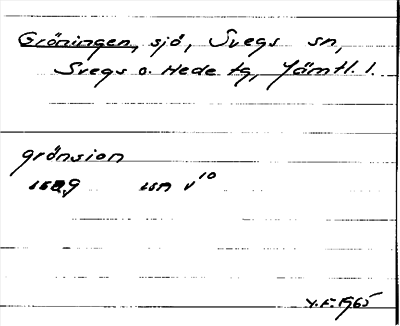 Gröningen, sjö, Svegs sn,
Svegs o. Hede tg, Jämtl. l.
grönsion
1529 usn v10
Y.F. 1965